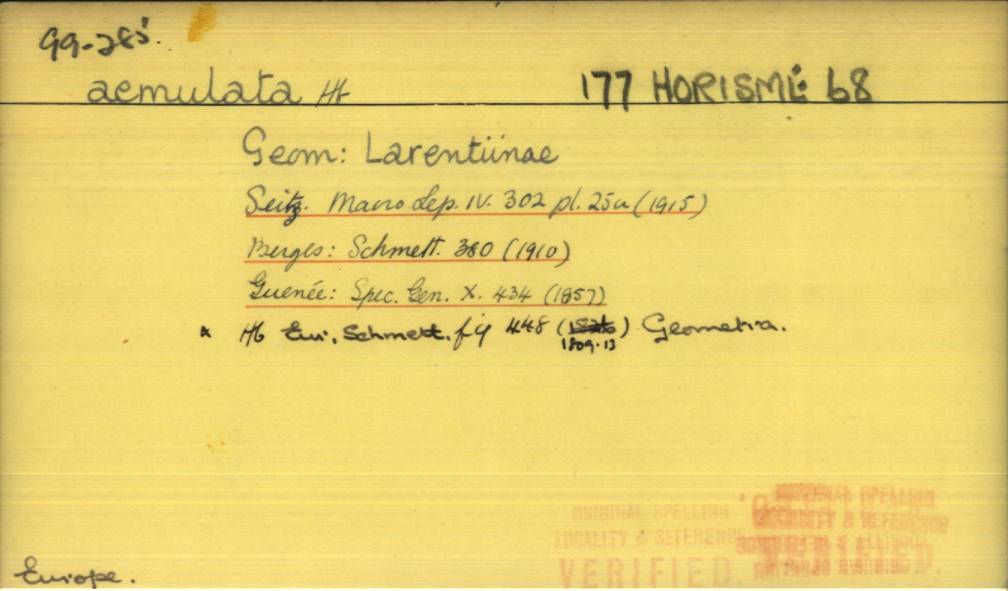 99-285.
aemulata Hb 177 HORISME 68
Geom: Larentiinae
Seitz. Macro Lep. IV. 302 pl. 25a (1915)
Berges: Schmett. 380 (1910)
Guenée: Spec. Gen. X. 434 (1857)
Hb Eur. Schmett. fig 448 ( ) Geometra.
1809-13
ORIGINAL SPELLING
LOCALITY & REFERENCE
VERIFIED.
Europe.